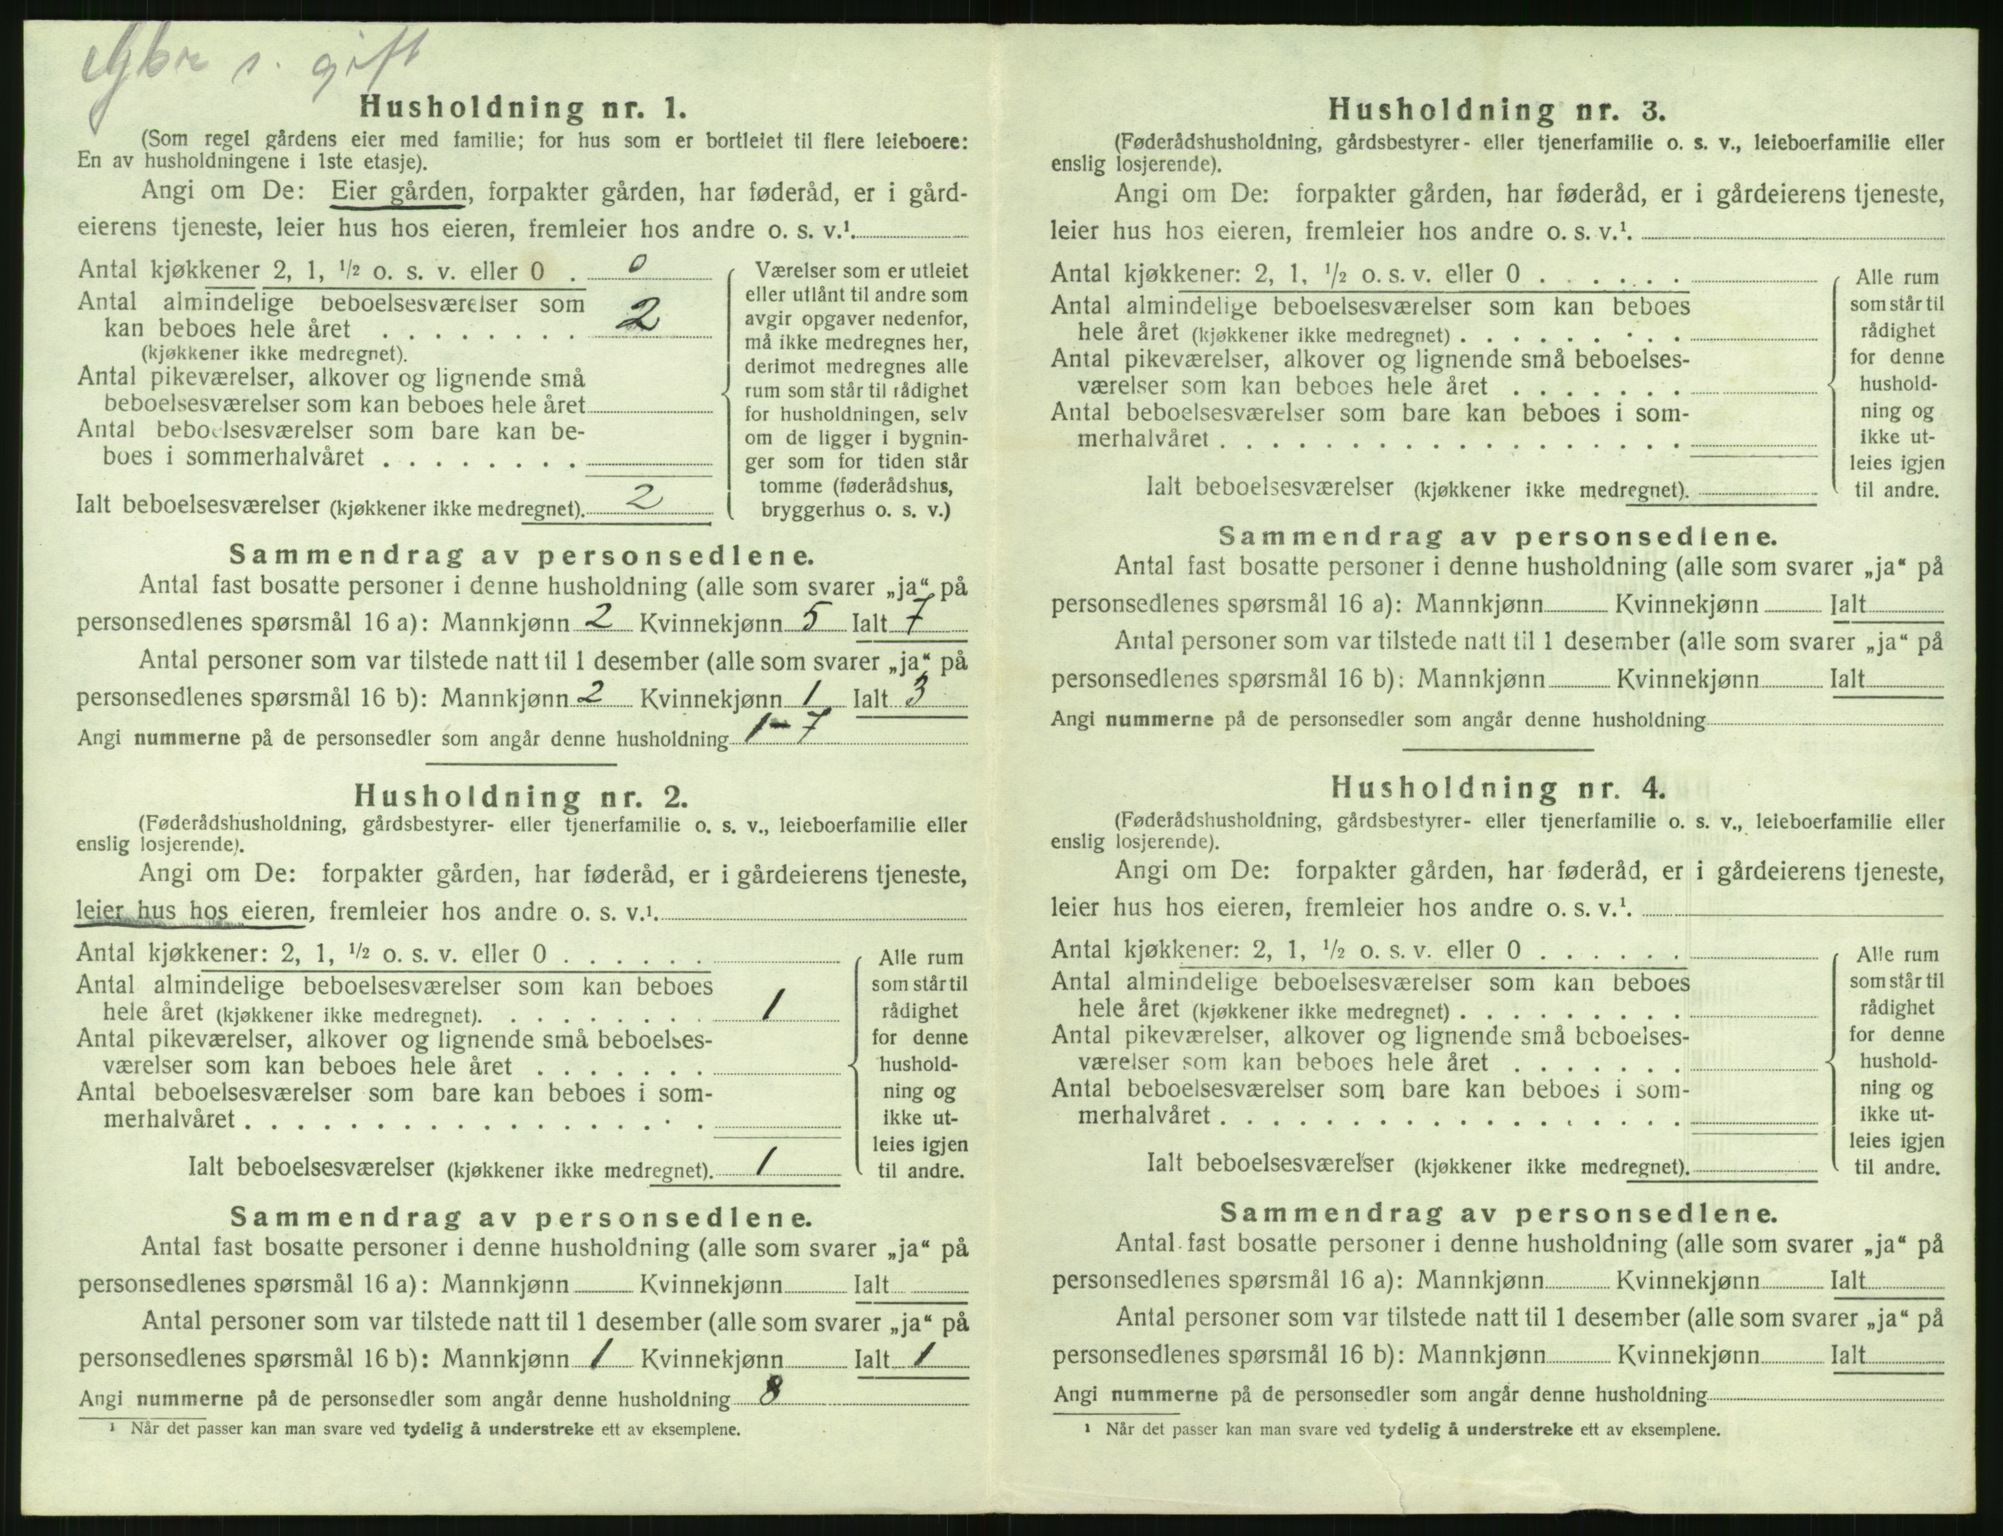 s. gift
Husholdning nr. 1.
(Som regel gårdens eier med familie; for hus som er bortleiet til flere leieboere:
En av husholdningene i 1ste etasje).
Angi om De: Eier gården, forpakter gården, har føderåd, er i gård-
eierens tjeneste, leier hus hos eieren, fremleier hos andre o. s. v.¹.
Antal kjøkkener 2, 1, ½ o. s. v. eller 0 . 0
Antal almindelige beboelsesværelser som
kan beboes hele året . . . . . . . . 2
(kjøkkener ikke medregnet).
Antal pikeværelser, alkover og lignende små
beboelsesværelser som kan beboes hele året
Antal beboelsesværelser som bare kan be-
boes i sommerhalvåret . . . . . . . .
Ialt beboelsesværelser (kjøkkener ikke medregnet). 2
Værelser som er utleiet
eller utlånt til andre som
avgir opgaver nedenfor,
må ikke medregnes her,
derimot medregnes alle
rum som står til rådighet
for husholdningen, selv
om de ligger i bygnin-
ger som for tiden står
tomme (føderådshus,
bryggerhus o. s. v.)
Sammendrag av personsedlene.
Antal fast bosatte personer i denne husholdning (alle som svarer „ja“ på
personsedlenes spørsmål 16 a): Mannkjønn 2 Kvinnekjønn 5 Ialt 7
Antal personer som var tilstede natt til 1 desember (alle som svarer „ja“ på
personsedlenes spørsmål 16 b): Mannkjønn 2 Kvinnekjønn 1 Ialt 3
Angi nummerne på de personsedler som angår denne husholdning 1-7
Husholdning nr. 2.
(Føderådshusholdning, gårdsbestyrer- eller tjenerfamilie o. s. v., leieboerfamilie eller
enslig losjerende).
Angi om De: forpakter gården, har føderåd, er i gårdeierens tjeneste,
leier hus hos eieren, fremleier hos andre o. s. v.¹.
Antal kjøkkener: 2, 1, ½ o. s. v. eller 0 . . . . . .
Antal almindelige beboelsesværelser som kan beboes
hele året (kjøkkener ikke medregnet). . . . . . . . . 1
Antal pikeværelser, alkover og lignende små beboelses-
værelser som kan beboes hele året . . . . . . .
Antal beboelsesværelser som bare kan beboes i som-
merhalvåret . . . . . . . . . . . . . . . . . .
Ialt beboelsesværelser (kjøkkener ikke medregnet). 1
Alle rum
som står til
rådighet
for denne
hushold-
ning og
ikke ut-
leies igjen
til andre.
Sammendrag av personsedlene.
Antal fast bosatte personer i denne husholdning (alle som svarer „ja“ på
personsedlenes spørsmål 16 a): Mannkjønn Kvinnekjønn Ialt
Antal personer som var tilstede natt til 1 desember (alle som svarer „ja“ på
personsedlenes spørsmål 16 b): Mannkjønn 1 Kvinnekjønn Ialt 1
Angi nummerne på de personsedler som angår denne husholdning 8
¹ Når det passer kan man svare ved tydelig å understreke ett av eksemplene.
Husholdning nr. 3.
(Føderådshusholdning, gårdsbestyrer- eller tjenerfamilie o. s. v., leieboerfamilie eller
enslig losjerende).
Angi om De: forpakter gården, har føderåd, er i gårdeierens tjeneste,
leier hus hos eieren, fremleier hos andre o. s. v.¹.
Antal kjøkkener: 2, 1, ½ o. s. v. eller 0 . . . . . .
Antal almindelige beboelsesværelser som kan beboes
hele året (kjøkkener ikke medregnet) . . . . . . . . .
Antal pikeværelser, alkover og lignende små beboelses-
værelser som kan beboes hele året . . . . . . .
Antal beboelsesværelser som bare kan beboes i som-
merhalvåret . . . . . . . . . . . . . . . . . .
Ialt beboelsesværelser (kjøkkener ikke medregnet).
Alle rum
som står til
rådighet
for denne
hushold-
ning og
ikke ut-
leies igjen
til andre.
Sammendrag av personsedlene.
Antal fast bosatte personer i denne husholdning (alle som svarer „ja“ på
personsedlenes spørsmål 16 a): Mannkjønn Kvinnekjønn Ialt
Antal personer som var tilstede natt til 1 desember (alle som svarer „ja“ på
personsedlenes spørsmål 16 b): Mannkjønn Kvinnekjønn Ialt
Angi nummerne på de personsedler som angår denne husholdning
Husholdning nr. 4.
(Føderådshusholdning, gårdsbestyrer- eller tjenerfamilie o. s. v., leieboerfamilie eller
enslig losjerende).
Angi om De: forpakter gården, har føderåd, er i gårdeierens tjeneste,
leier hus hos eieren, fremleier hos andre o. s. v.¹.
Antal kjøkkener: 2, 1, ½ o. s. v. eller 0 . . . . . .
Antal almindelige beboelsesværelser som kan beboes
hele året (kjøkkener ikke medregnet) . . . . . . . . .
Antal pikeværelser, alkover og lignende små beboelses-
værelser som kan beboes hele året . . . . . . .
Antal beboelsesværelser som bare kan beboes i som-
merhalvåret . . . . . . . . . . . . . . . . . .
Ialt beboelsesværelser (kjøkkener ikke medregnet).
Alle rum
som står til
rådighet
for denne
hushold-
ning og
ikke ut-
leies igjen
til andre.
Sammendrag av personsedlene.
Antal fast bosatte personer i denne husholdning (alle som svarer „ja“ på
personsedlenes spørsmål 16 a): Mannkjønn Kvinnekjønn Ialt
Antal personer som var tilstede natt til 1 desember (alle som svarer „ja“ på
personsedlenes spørsmål 16 b): Mannkjønn Kvinnekjønn Ialt
Angi nummerne på de personsedler som angår denne husholdning
¹ Når det passer kan man svare ved tydelig å understreke ett av eksemplene.